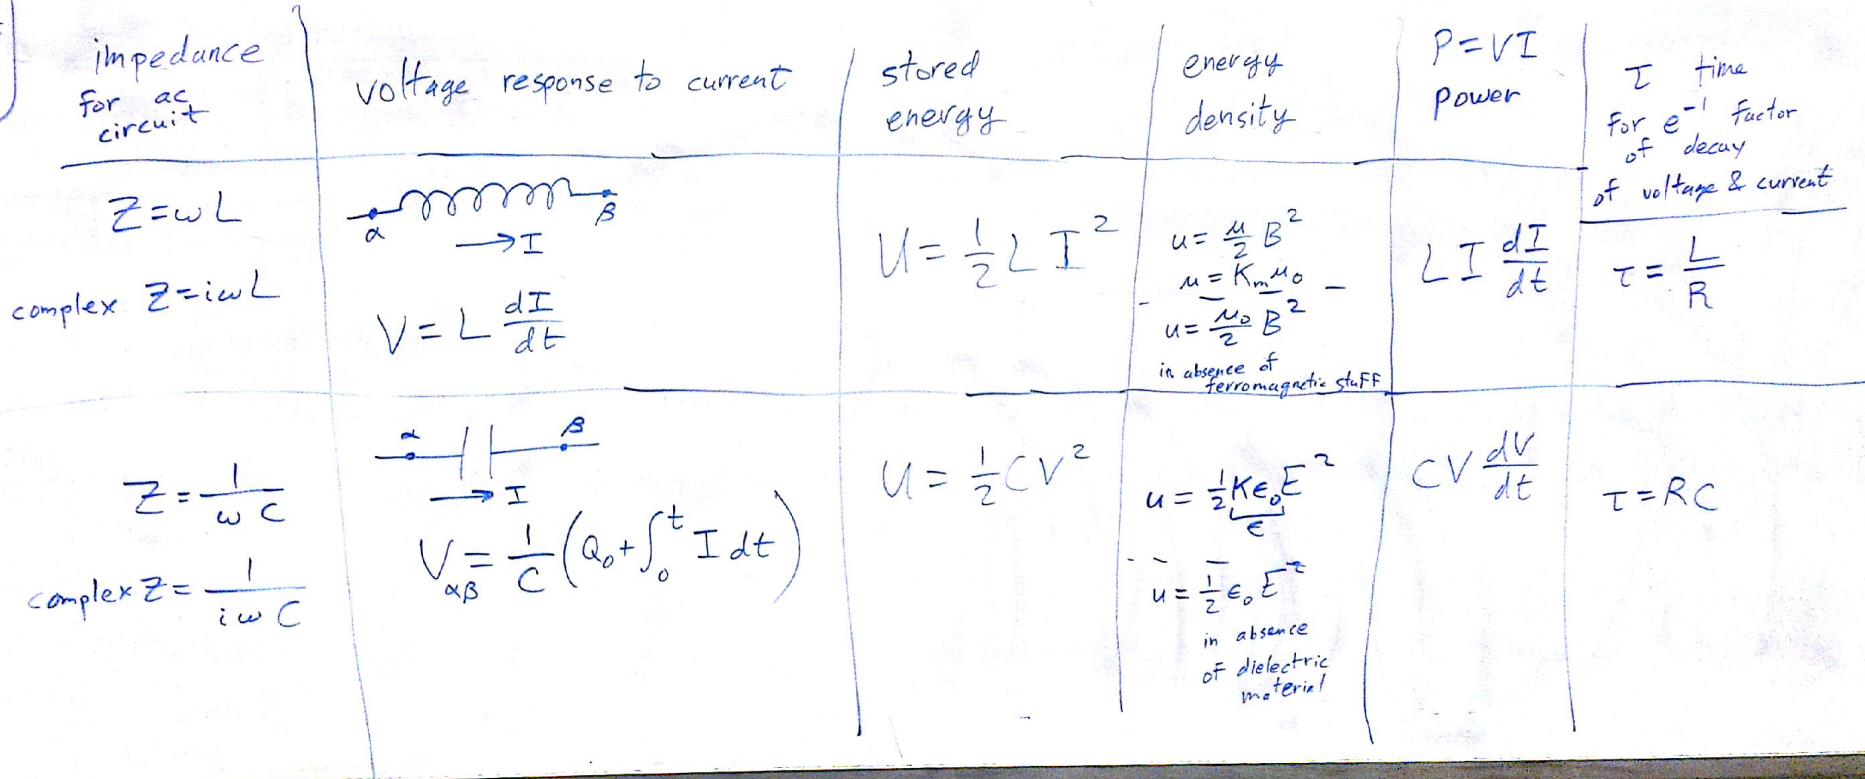 impedance
for ac
circuit
voltage response to current
stored
energy
energy
density
P=VI
Power
τ time
for e⁻¹ factor
of decay
of voltage & current
Z=ωL
complex Z=iωL
α β
→I
V=L dI/dt
U=½LI²
u=μ/2 B²
μ=Kₘμ₀
u=μ₀/2 B²
in absence of
ferromagnetic stuff
LI dI/dt
τ=L/R
Z=1/ωC
complex Z=1/iωC
α β
→I
V_αβ=1/C(Q₀+∫₀ᵗ I dt)
U=½CV²
u=½Kε₀E²
ε
u=½ε₀E²
in absence
of dielectric
material
CV dV/dt
τ=RC